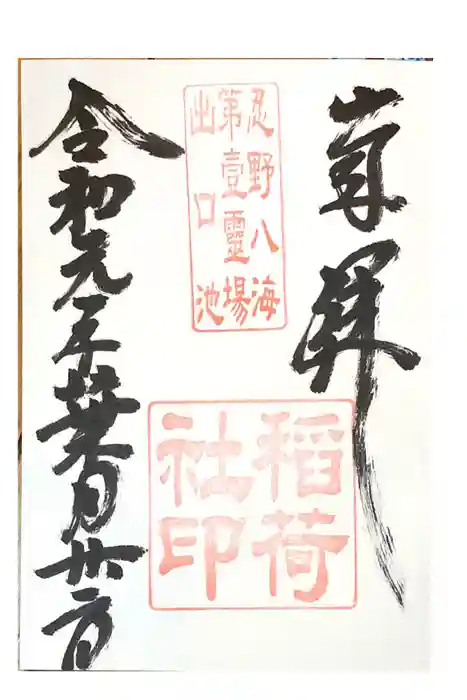 奉拝
忍野八海
第壹靈場
出口池
稲荷
社印
令和元年葉月廿二日